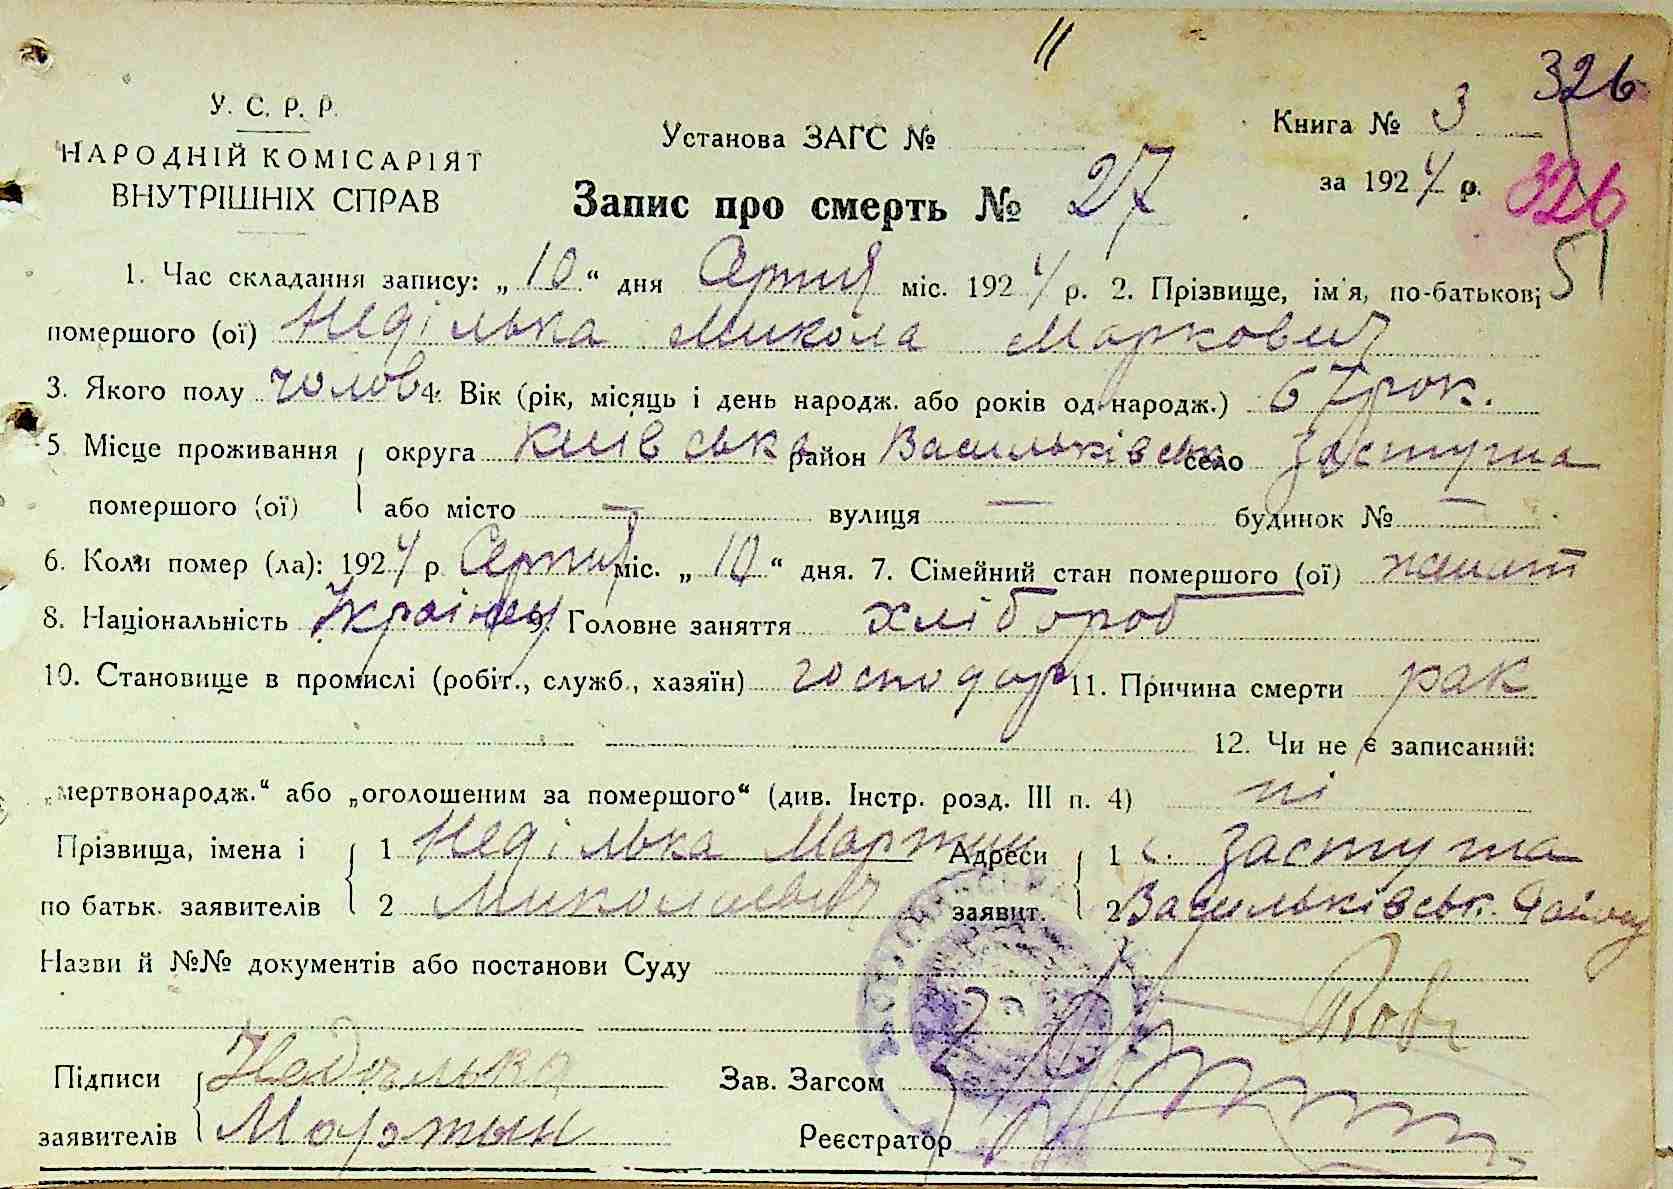 11
326
У. С. Р. Р.
НАРОДНІЙ КОМІСАРІЯТ
ВНУТРІШНІХ СПРАВ
Установа ЗАГС №
Книга № 3
за 1924 р.
326
51
Запис про смерть № 27
1. Час складання запису: „ 10 “ дня Серпня міс. 1924 р. 2. Прізвище, ім'я, по-батькові
помершого (ої) Неділька Микола Маркович
3. Якого полу чолов 4. Вік (рік, місяць і день народж. або років од народж.) 67 рок.
5 Місце проживання округа Київська район Васильківськ село Застугна
помершого (ої) або місто — вулиця — будинок № —
6. Коли помер (ла): 1924 р Серпня міс. „ 10 “ дня. 7. Сімейний стан помершого (ої)
8. Національність Українец 9. Головне заняття хлібороб
10. Становище в промислі (робіт., служб., хазяїн) господар 11. Причина смерти рак
12. Чи не є записаний:
„мертвонародж.“ або „оголошеним за помершого“ (див. Інстр. розд. III п. 4) ні
Прізвища, імена і 1 Неділька Мартин Адреси 1 с. Застугна
по батьк. заявителів 2 Миколаевич заявит. 2 Васильківськ. Району
Назви й №№ документів або постанови Суду
Підписи Недилька Зав. Загсом
заявителів Мартын Реєстратор